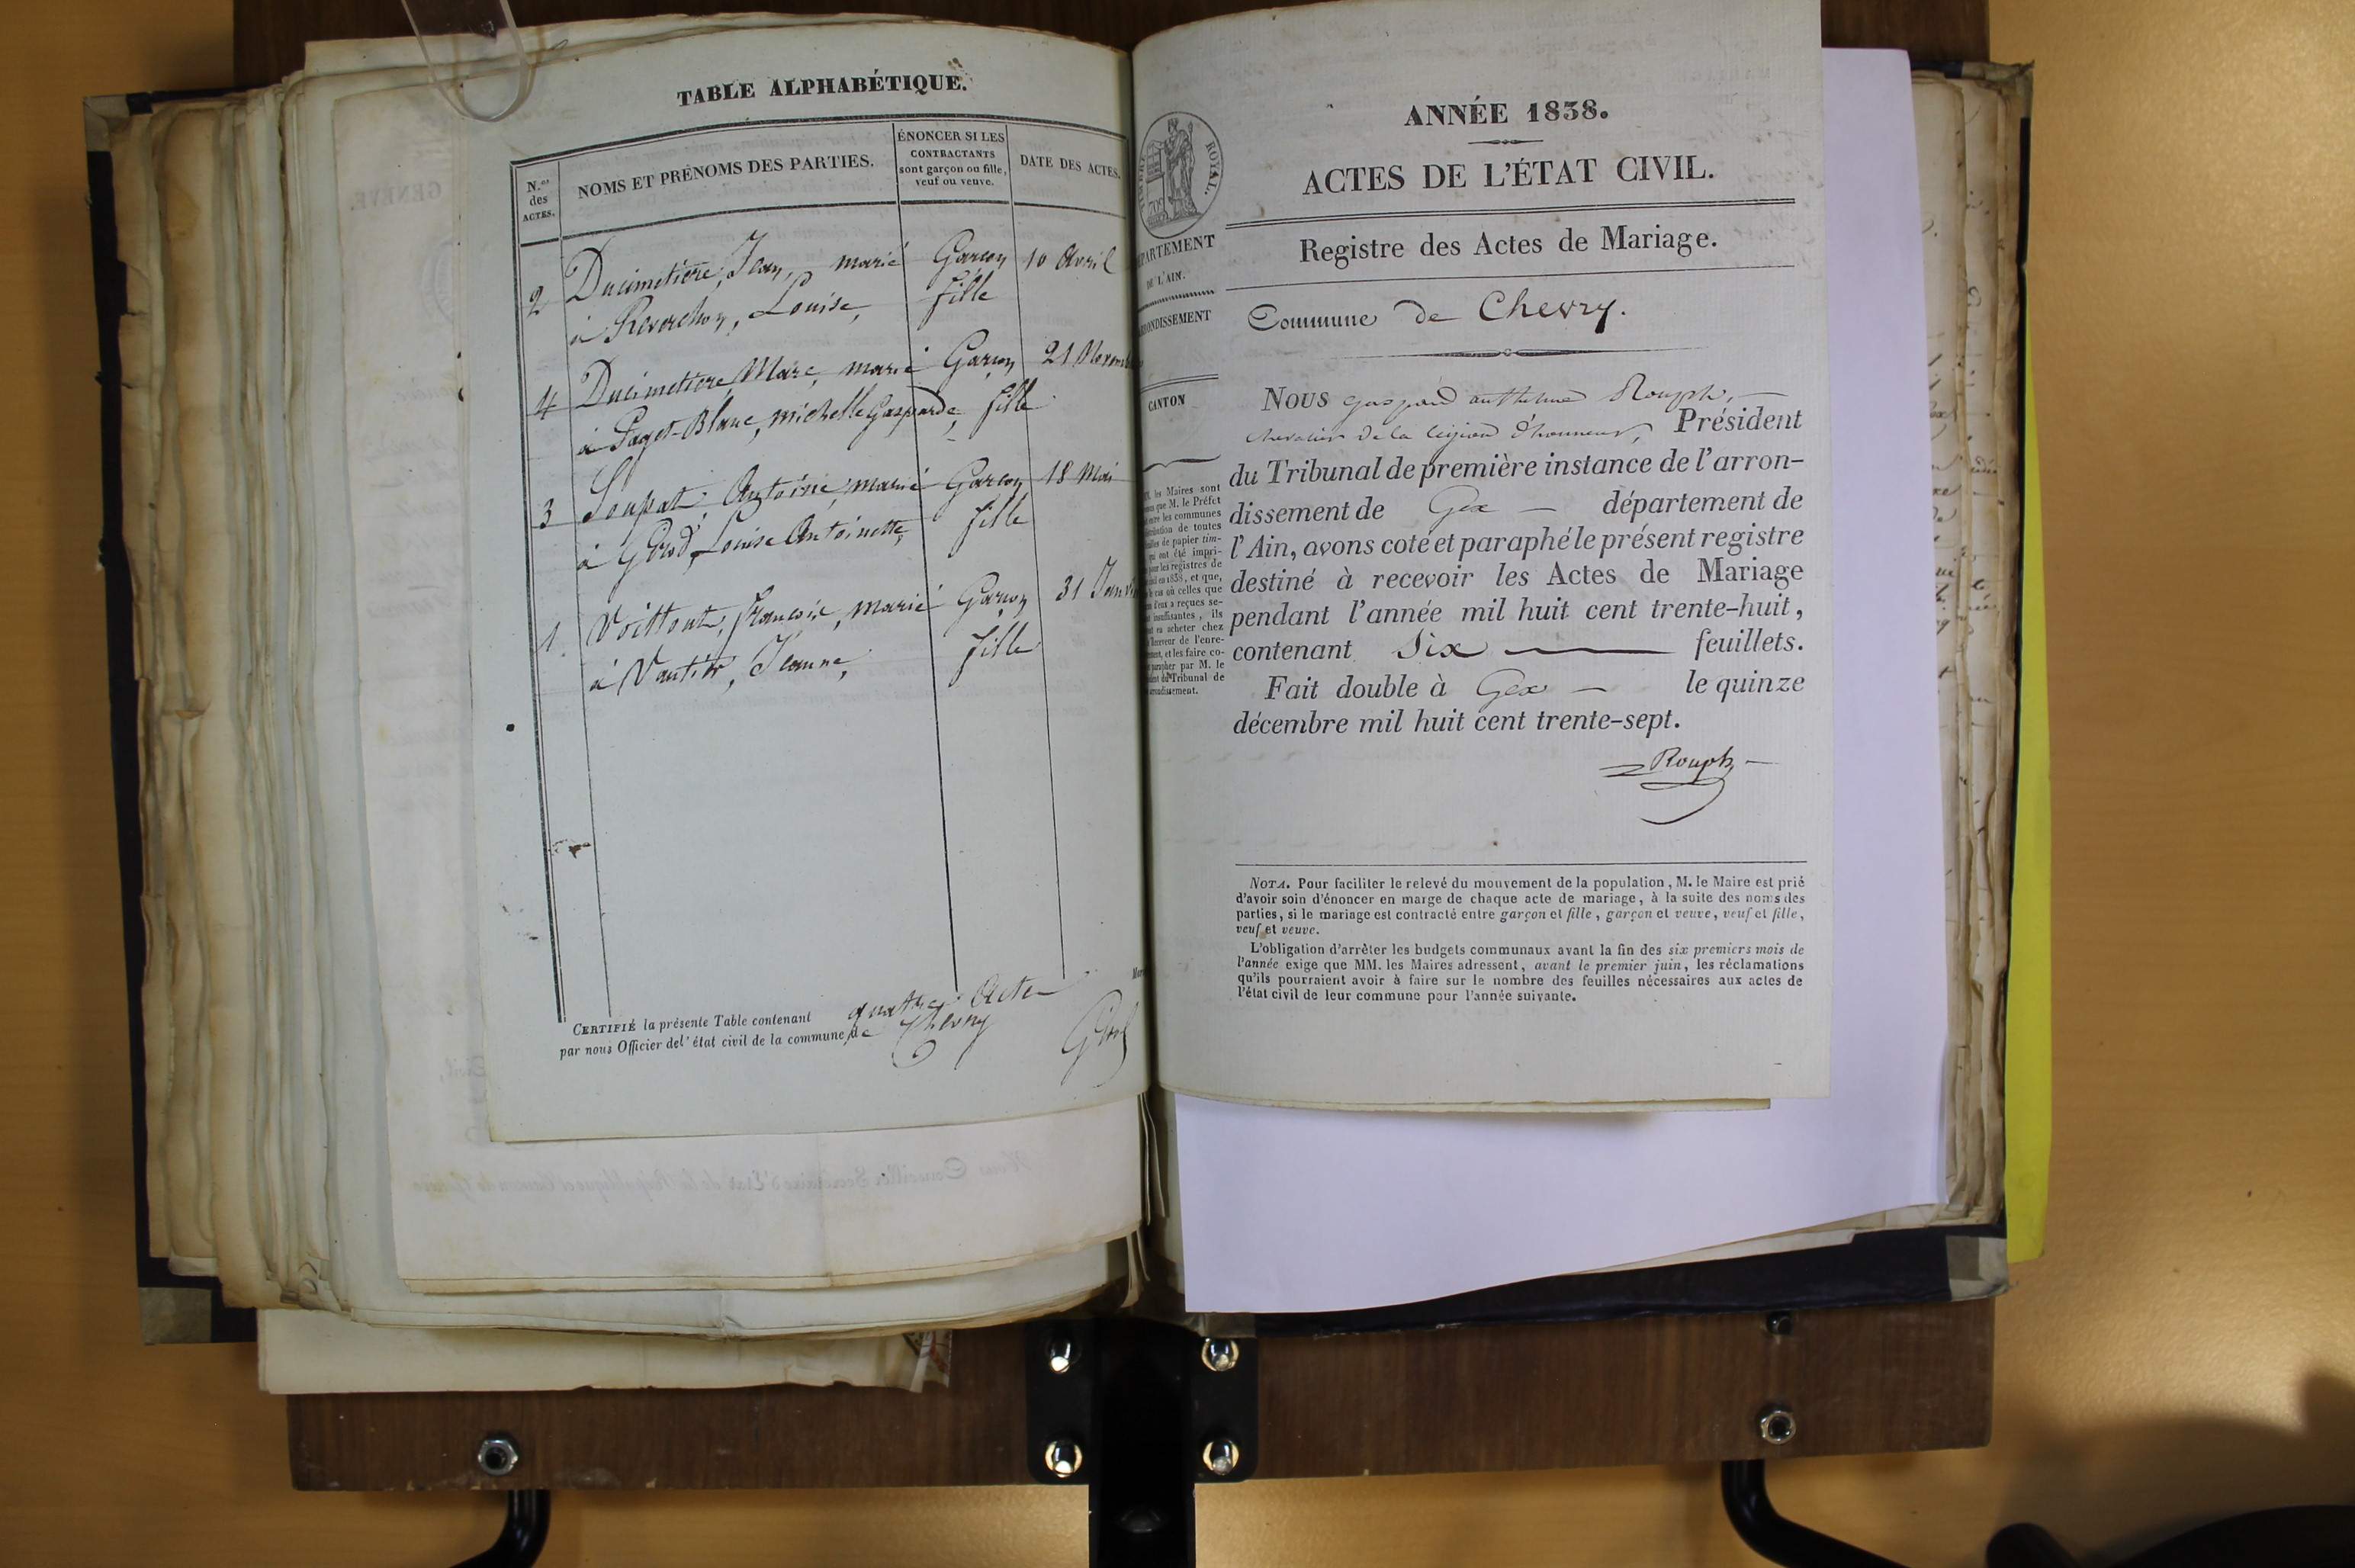 TABLE ALPHABÉTIQUE.
N.os des ACTES.
NOMS ET PRÉNOMS DES PARTIES.
ÉNONCER SI LES CONTRACTANTS sont garçon ou fille, veuf ou veuve.
DATE DES ACTES.
2 Ducimetière, Jean, marié Garçon 10 Avril
à Reverchon, Louise, fille
4 Ducimetière, Marc, marié Garçon 21
à Paget-Blanc, michelle Gasparde, fille
3 Soupat, Antoine, marié Garçon 18 Mai
à Girod, Louise Antoinette, fille
1 françois, marié Garçon 31
à Vautier, Jeanne, fille
CERTIFIÉ la présente Table contenant quatre Actes
par nous Officier de l'état civil de la commune de Chevry
Girod
TIMBRE ROYAL.
DE L'AIN.
CANTON
les Maires sont
que M. le Préfet
les communes
de toutes
de papier tim-
qui ont été impri-
pour les registres de
en 1838, et que,
le cas où celles que
a reçues se-
insuffisantes, ils
en acheter chez
Receveur de l'enre-
et les faire co-
parapher par M. le
du Tribunal de
ANNÉE 1838.
ACTES DE L'ÉTAT CIVIL.
Registre des Actes de Mariage.
Commune de Chevry.
NOUS gaspard anthelme Rouph, —
chevalier de la légion d'honneur, Président
du Tribunal de première instance de l'arron-
dissement de Gex — département de
l'Ain, avons coté et paraphé le présent registre
destiné à recevoir les Actes de Mariage
pendant l'année mil huit cent trente-huit,
contenant Six — feuillets.
Fait double à Gex — le quinze
décembre mil huit cent trente-sept.
Rouph
NOTA. Pour faciliter le relevé du mouvement de la population, M. le Maire est prié
d'avoir soin d'énoncer en marge de chaque acte de mariage, à la suite des noms des
parties, si le mariage est contracté entre garçon et fille, garçon et veuve, veuf et fille,
veuf et veuve.
L'obligation d'arrêter les budgets communaux avant la fin des six premiers mois de
l'année exige que MM. les Maires adressent, avant le premier juin, les réclamations
qu'ils pourraient avoir à faire sur le nombre des feuilles nécessaires aux actes de
l'état civil de leur commune pour l'année suivante.